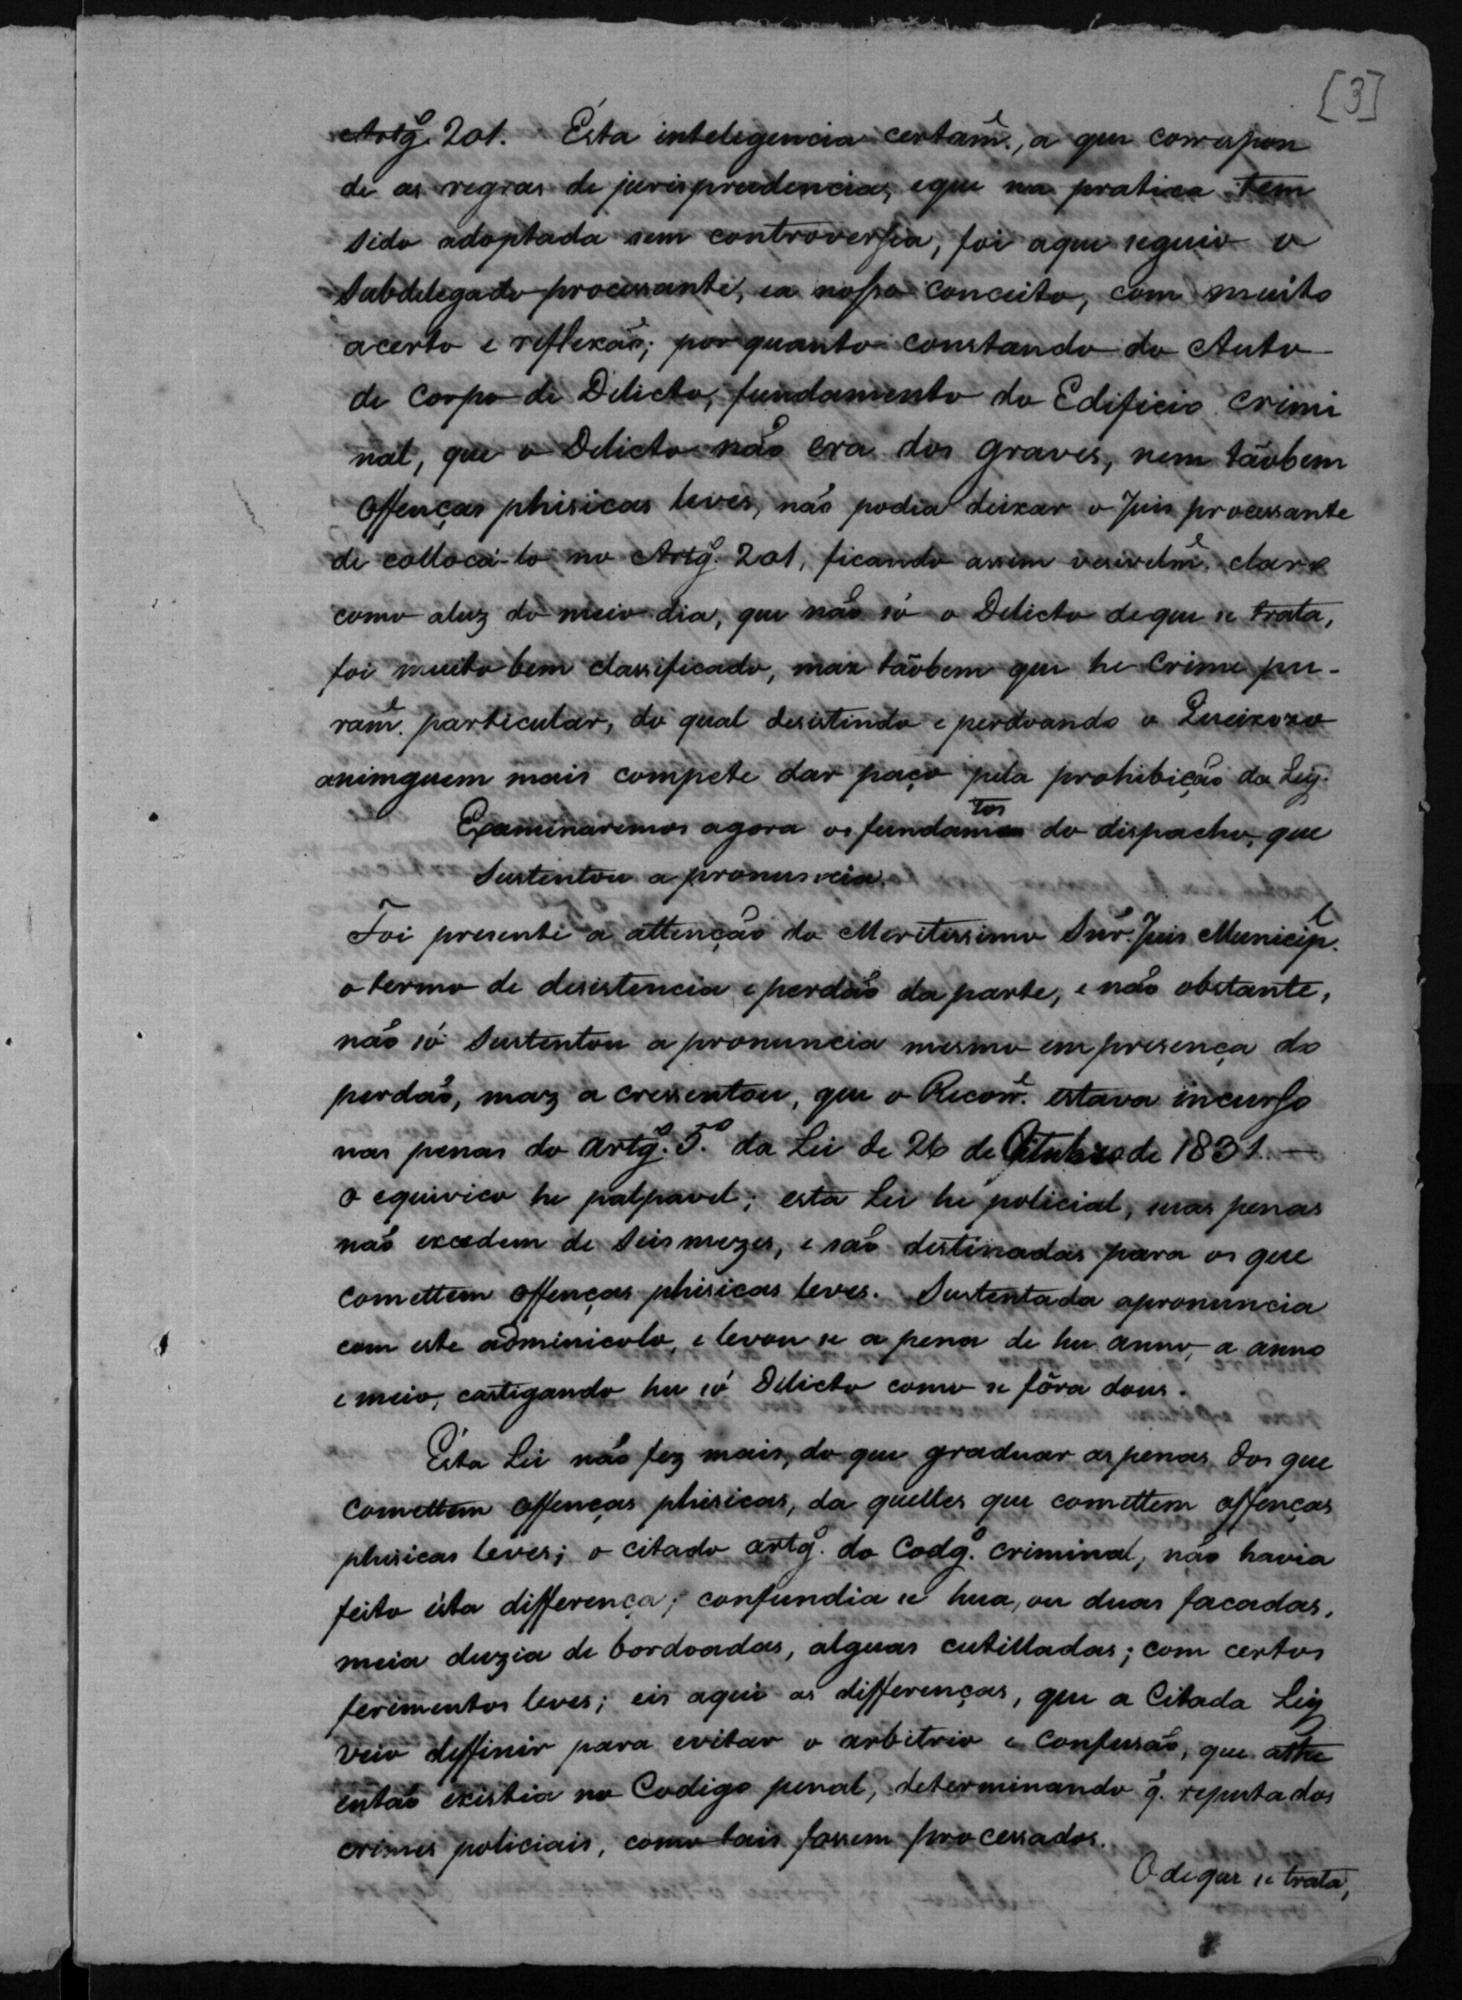 [3]
Artgº. 201. Ésta intelegencia certamᵉ., a que correspon
de as regras de jurisprudencia, eque na pratica tem
sido adoptada sem controversia, foi aque seguio o
Subdelegado processante, ea nosso conceito, com muito
acerto e reflexaõ; por quanto constando do Auto
de Corpo de Delicto, fundamento do Edificio crimi
nal, que o Delicto naõ era dos graves, nem tãobem
offenças phisicas leves, naõ podia deixar o Juis processante
de collocá-lo no Artgº. 201, ficando assim vesivelmᵉ. claro
como aluz do meio dia, que naõ só o Delicto deque se trata,
foi muito bem classificado, maz tãobem que he Crime pu-
ramᵉ. particular, do qual desistindo e perdoando o Queixozo
aninguem mais compete dar paço pela prohibiçaõ da Ley.
Examinaremos agora os fundamtos do dispacho, que
Sustentou a pronuncia.
Foi presente a attençaõ do Meritissimo Snr̃. Juis Municipˡ.
o termo de desistencia e perdaõ da parte, e naõ obstante,
naõ só Sustentou a pronuncia mesmo em presença do
perdaõ, maz a cressentou, que o Recorrᵉ. estava incurso
nas penas do artgº. 5º. da Lei de 26 de Outubro de 1831. —
O equivico he palpavel; esta Lei he policial, suas penas
naõ excedem de Seis mezes, e saõ destinadas para os que
comettem offenças phisicas leves. Sustentada apronuncia
com este adminicolo, e levou se a pena de hu anno, a anno
e meio, castigando hu só Delicto como se fôra dous.
Ésta Lei naõ fez mais, do que graduar as penas dos que
comettem offenças phisicas, da quelles que comettem offenças
phisicas leves; o citado artgº. do Codgº. criminal, naõ havia
feito ésta differença; confundia se hua, ou duas facadas,
meia duzia de bordoadas, alguas cutilladas; com certos
ferimentos leves; eis aqui as differenças, que a Citada Ley
veio deffinir para evitar o arbitrio e confusaõ, que athe
entaõ existia no Codigo penal, determinando q̃. reputados
crimes policiais, como tais fossem processados.
O de que se trata,